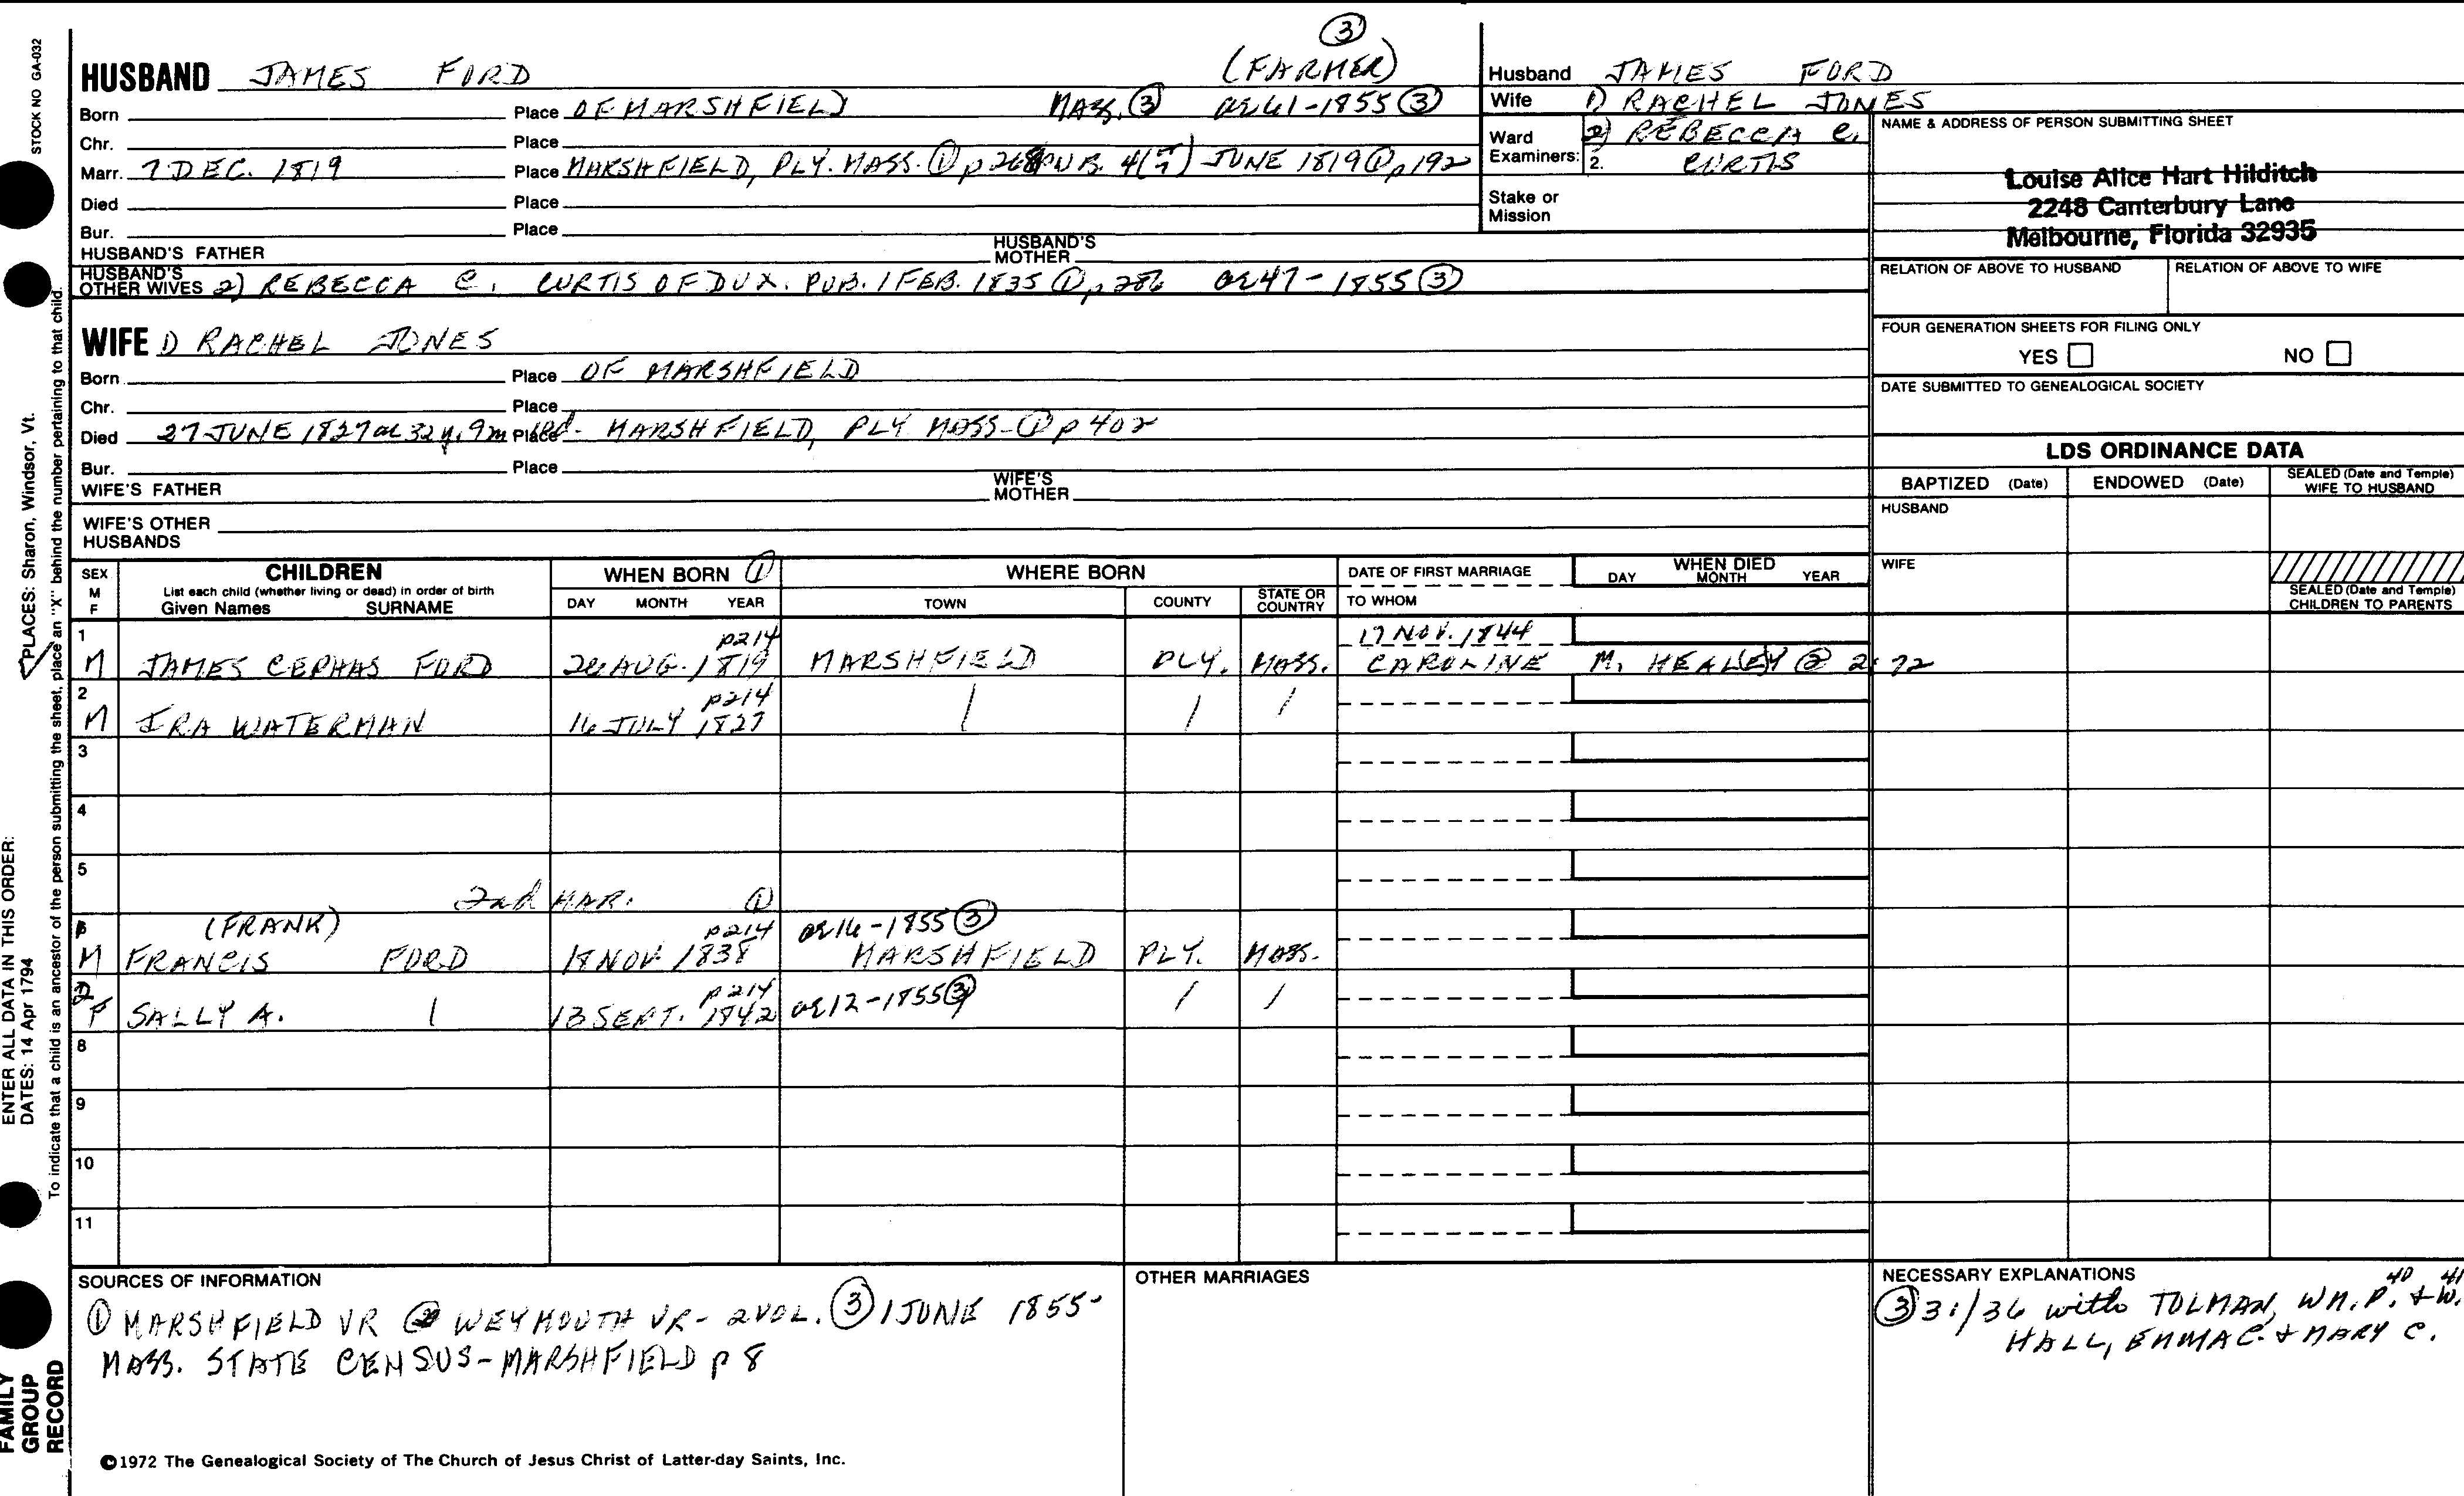 STOCK NO GA-032
PLACES: Sharon, Windsor, Vt.
ENTER ALL DATA IN THIS ORDER:
DATES: 14 Apr 1794
To indicate that a child is an ancestor of the person submitting the sheet, place an "X" behind the number pertaining to that child.
FAMILY GROUP RECORD
③
HUSBAND JAMES FORD (FARMER)
Born Place OF MARSHFIELD MASS. ③ ae 61-1855 ③
Chr. Place
Marr. 7 DEC. 1819 Place MARSHFIELD, PLY. MASS. ① p 268 PUB. 4( ) JUNE 1819 ① p 192
Died Place
Bur. Place
HUSBAND'S FATHER HUSBAND'S MOTHER
HUSBAND'S OTHER WIVES 2) REBECCA C. CURTIS OF DUX. PUB. 1 FEB. 1835 ① p 286 ae 47-1855 ③
WIFE 1) RACHEL JONES
Born Place OF MARSHFIELD
Chr. Place
Died 27 JUNE 1827 ae 32 y. 9m Place MARSHFIELD, PLY MASS-① p 402
Bur. Place
WIFE'S FATHER WIFE'S MOTHER
WIFE'S OTHER HUSBANDS
Husband JAMES FORD
Wife 1) RACHEL JONES
Ward Examiners: 2) REBECCA C.
2. CURTIS
Stake or Mission
NAME & ADDRESS OF PERSON SUBMITTING SHEET
Louise Alice Hart Hilditch
2248 Canterbury Lane
Melbourne, Florida 32935
RELATION OF ABOVE TO HUSBAND RELATION OF ABOVE TO WIFE
FOUR GENERATION SHEETS FOR FILING ONLY
YES NO
DATE SUBMITTED TO GENEALOGICAL SOCIETY
LDS ORDINANCE DATA
BAPTIZED (Date) ENDOWED (Date) SEALED (Date and Temple) WIFE TO HUSBAND
HUSBAND
WIFE
SEALED (Date and Temple) CHILDREN TO PARENTS
SEX M F
CHILDREN
List each child (whether living or dead) in order of birth
Given Names SURNAME
WHEN BORN ①
DAY MONTH YEAR
WHERE BORN
TOWN COUNTY STATE OR COUNTRY
DATE OF FIRST MARRIAGE
TO WHOM
WHEN DIED
DAY MONTH YEAR
1 p214 17 NOV. 1844
M JAMES CEPHAS FORD AUG. 1819 MARSHFIELD PLY. MASS. CAROLINE M. HEALEY ② 2:72
2 p214
M IRA WATERMAN 16 JULY 1827 / / /
3
4
5
2nd MAR. ①
(FRANK) p214 ae 16-1855 ③
M FRANCIS FORD 18 NOV 1838 MARSHFIELD PLY. MASS.
2 p214
F SALLY A. / 13 SEPT. 1842 ae 12-1855 ③ / /
8
9
10
11
SOURCES OF INFORMATION
① MARSHFIELD VR ② WEYMOUTH VR- 2 VOL. ③ 1 JUNE 1855-
MASS. STATE CENSUS-MARSHFIELD p 8
OTHER MARRIAGES
NECESSARY EXPLANATIONS 40 41
③ 31/36 with TOLMAN, WM. P. + W.
HALL, EMMA C. + MARY C.
©1972 The Genealogical Society of The Church of Jesus Christ of Latter-day Saints, Inc.